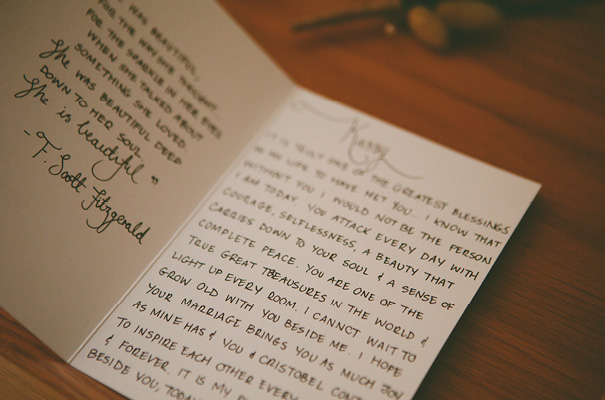 WAS BEAUTIFUL,
FOR THE WAY SHE THOUGHT.
FOR THE SPARKLE IN HER EYES
WHEN SHE TALKED ABOUT
SOMETHING SHE LOVED.
She WAS BEAUTIFUL DEEP
DOWN TO HER SOUL.
She is beautiful"
- F. Scott Fitzgerald
IT IS TRULY ONE OF THE GREATEST BLESSINGS
IN MY LIFE TO HAVE MET YOU... I KNOW THAT
WITHOUT YOU I WOULD NOT BE THE PERSON
I AM TODAY. YOU ATTACK EVERY DAY WITH
COURAGE, SELFLESSNESS, A BEAUTY THAT
CARRIES DOWN TO YOUR SOUL & A SENSE OF
COMPLETE PEACE. YOU ARE ONE OF THE
TRUE GREAT TREAUSURES IN THE WORLD &
LIGHT UP EVERY ROOM. I CANNOT WAIT TO
GROW OLD WITH YOU BESIDE ME. I HOPE
YOUR MARRIAGE BRINGS YOU AS MUCH JOY
AS MINE HAS & YOU & CRISTOBEL CONT
TO INSPIRE EACH OTHER EVERY
& FOREVER. IT IS MY
BESIDE YOU, TODA